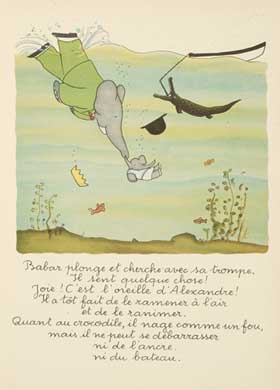 Babar plonge et cherche avec sa trompe.
Il sent quelque chose!
Joie! C'est l'oreille d'Alexandre!
Il a tôt fait de le ramener à l'air
et de le ranimer.
Quant au crocodile, il nage comme un fou,
mais il ne peut se débarrasser
ni de l'ancre.
ni du bateau.